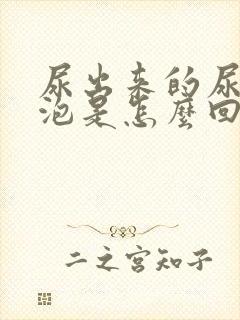 尿出来的尿
泡是怎麼回
二之宫知子